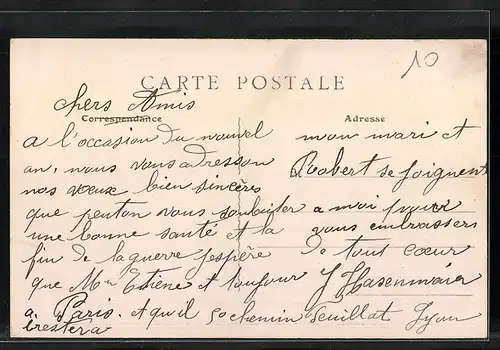 10
CARTE POSTALE
Chers Amis
Correspondance
a l'occasion du nouvel
an, nous vous adresson
nos vœux bien sincères
que peuton vous souhaiter
une bonne santé et la
fin de la guerre j'espère
que Mr Etiene et toujour
a Paris. et qu'il
i restera
Adresse
mon mari et
Robert se joignent
a moi pour
vous embrasser
de tout cœur
J Hasenmaier
50 chemin Feuillat Lyon